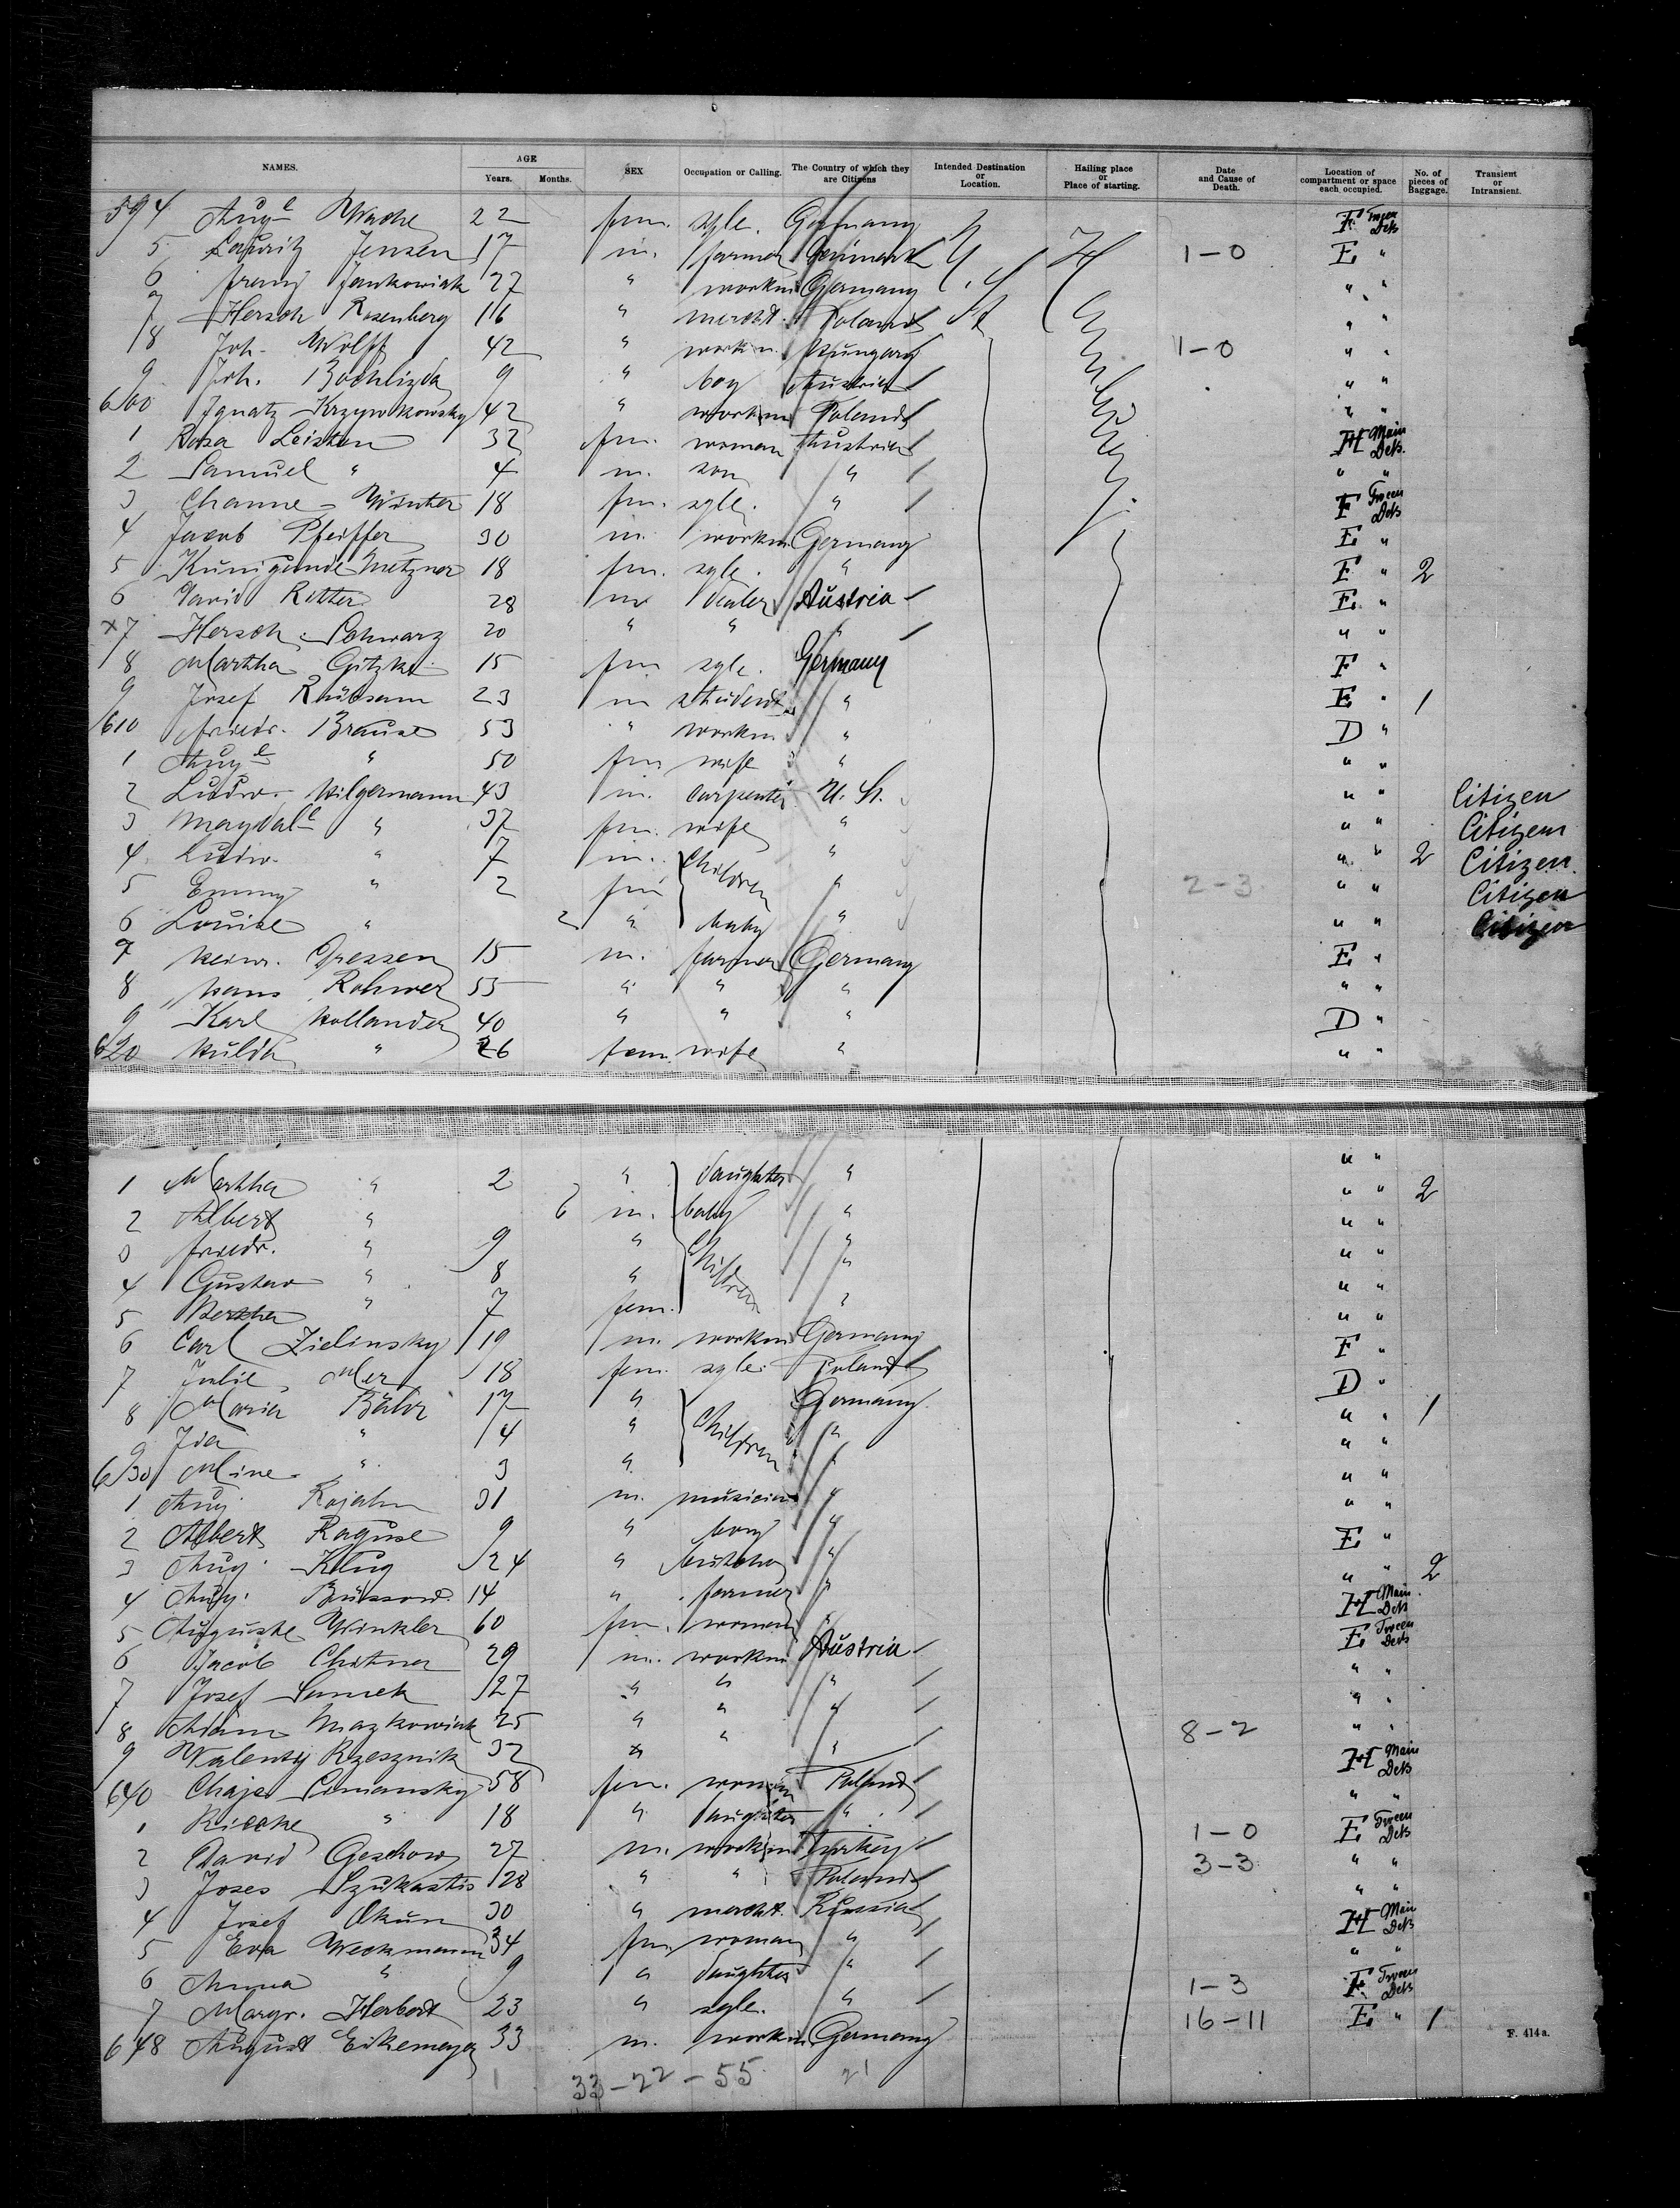 NAMES. AGE Years. Months. SEX Occupation or Calling. The Country of which they are Citizens Intended Destination or Location. Hailing place or Place of starting. Date and Cause of Death. Location of compartment or space each occupied. No. of pieces of Baggage. Transient or Intransient.
594 Augᵉ 22 fem. sgle. Germany F Tween Deks
5 Lauritz Jensen 17 m. farmer Denmark 1-0 E "
6 Jankowiak 27 " workm Germany " "
7 Hersch Rosenberg 16 " mercht. Poland " "
8 Joh. Wolff 42 " workm. Hungary 1-0 " "
9 Joh. 9 " boy Austria " "
600 Ignatz Krzywkowsky 42 " workm Poland " "
1 Rosa Leisten 32 fm. woman Austria H Main Deks.
2 Samuel " 4 m. son " " "
3 Channe Winter 18 fm. sgle. " F Tween Deks
4 Jacob Pfeiffer 30 m. workm. Germany E "
5 Kunigunde Metzner 18 fm. sgle. " F " 2
6 David Ritter 28 m dealer Austria E "
x7 Hersch Schwarz 20 " " " " "
8 Martha Gitzke 15 fm sgle. Germany F "
9 Josef Raübsam 23 m student " E " 1
610 Friedr. Brause 53 " workm " D "
1 Augᵉ " 50 fm wife " " "
2 Ludw. Hilgermann 43 m. carpenter U. St. " " Citizen
3 Magdalᵉ " 37 fm. wife " " " Citizen
4 Ludw. " 7 m. Children " " " 2 Citizen
5 Emmy " 2 fm " 2-3 " " Citizen
6 Louise " 2 " baby " " " Citizen
7 Heinr. Gressen 15 m. farmer Germany E "
8 Hans Rohwer 55 " " " " "
9 Karl Hollander 40 " " " D "
620 Hulda " 26 fem. wife " " "
1 Martha " 2 " daughter " " "
2 Albert " 6 m. baby " " " 2
3 Friedr. " 9 " Children " " "
4 Gustav " 8 " " " "
5 Bertha " 7 fem. " " "
6 Carl Zielinsky 19 m. workm Germany " "
7 Julie 18 fem. sgle. Poland F "
8 Maria 17 " Germany D "
9 Ida " 4 " Children " " " 1
630 Mine " 3 " " " "
1 Aug. Rojahn 31 m. musician " " "
2 Albert Raguse 9 " boy " " "
3 Aug. Klug 24 " butcher " E "
4 Aug. Büssow. 14 " farmer " " " 2
5 Auguste Winkler 60 fm. woman " H Main Deks
6 Jacob Chitner 29 m. workm Austria E Tween Deks
7 Josef Samek 27 " " " " "
8 Adam Mazkowiak 25 " " " " "
9 Walenty Rzesznik 32 " " " 8-2 " "
640 Chaje Semansky 58 fem. woman Poland H Main Deks
1 " 18 " daughter " " "
2 David Geschow 27 m. workm Turkey 1-0 E Tween Deks
3 Joses Szukastis 28 " " Poland 3-3 " "
4 Josef Okun 30 " mercht. Russia " "
5 Eva Weckmann 34 fm. woman " H Main Deks
6 Anna " 9 " daughter " " "
7 Margr. Herbert 23 " sgle. " 1-3 F Tween Deks
648 August Eikemeyer 33 m. workm Germany 16-11 E " 1
F. 414a.
1 33-22-55 21